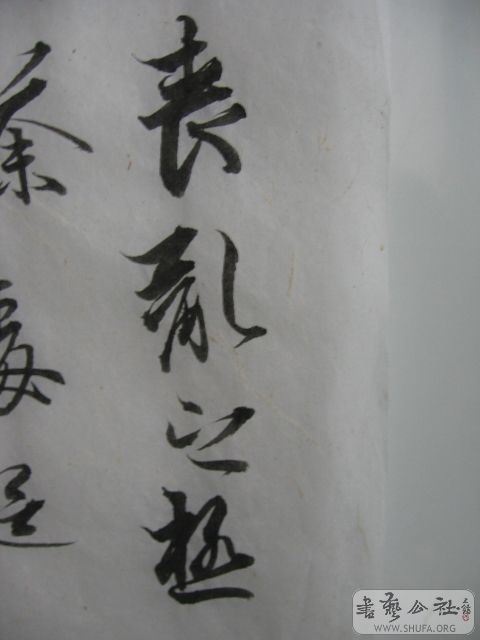 喪亂之極
荼毒追
書藝公社
WWW.SHUFA.ORG